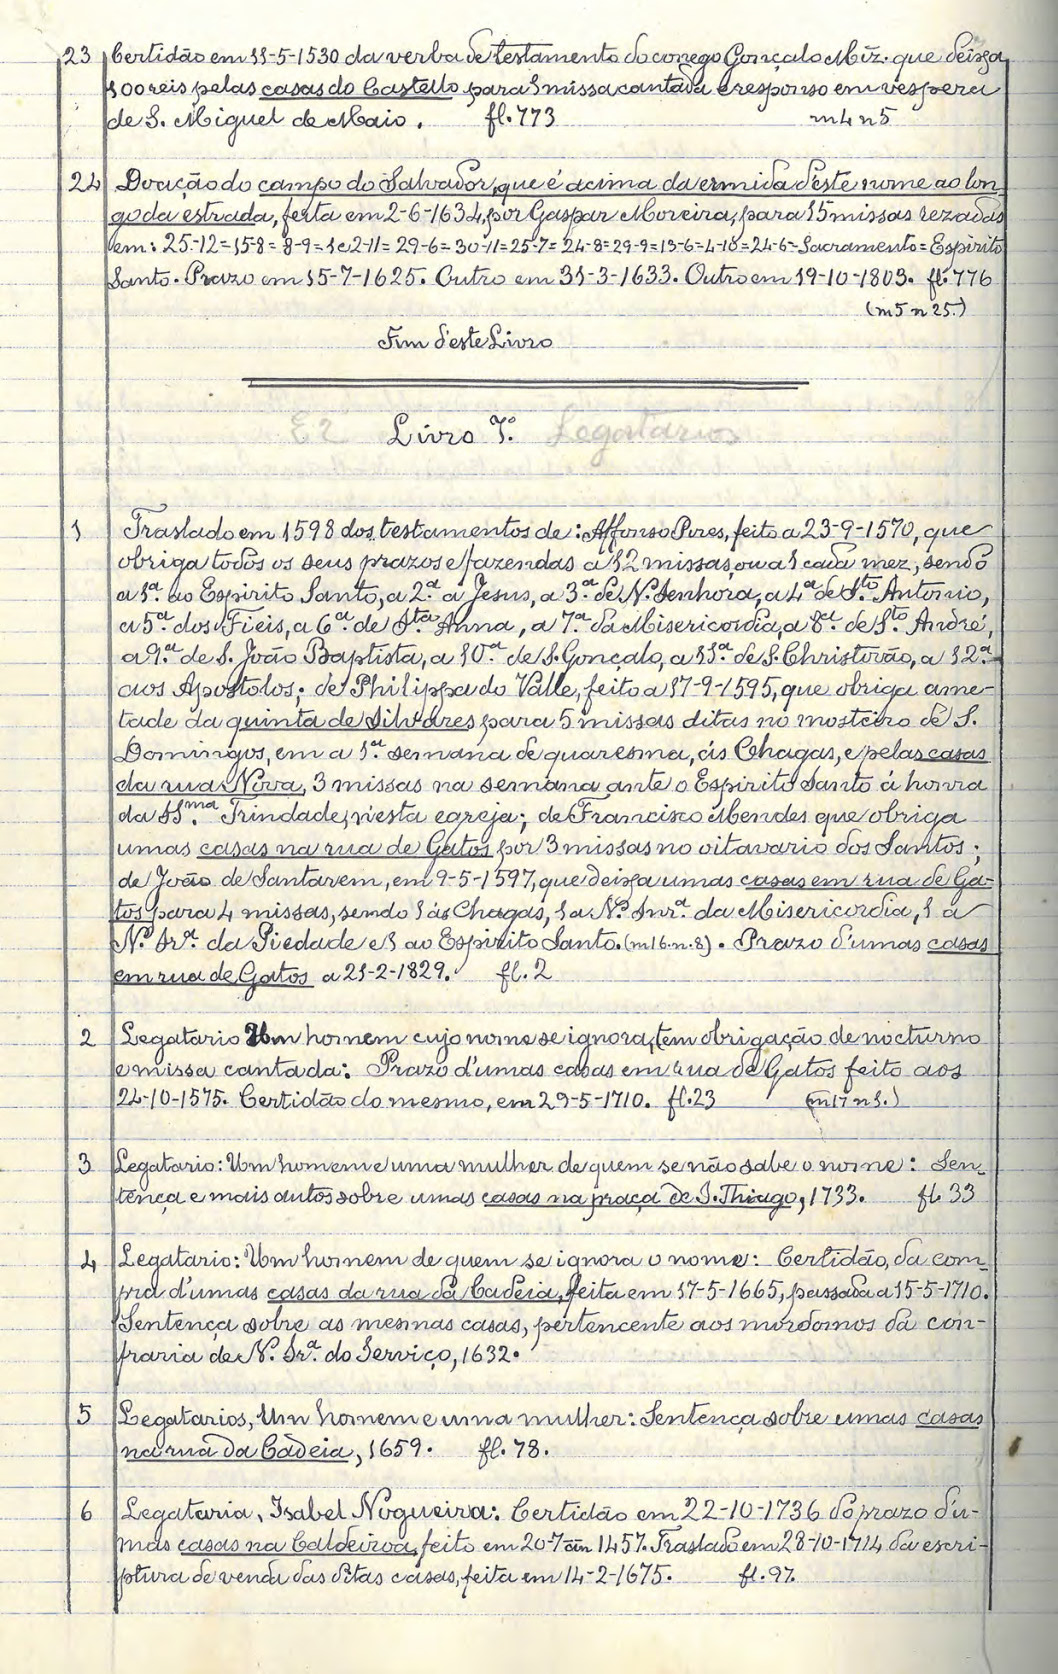 23 Certidão em 11-5-1530 da verba de testamento do conego Gonçalo Miz. que deixa
100 reis pelas casas do Castello para 1 missa cantada e responso em vespera
de S. Miguel de Maio. fl. 773 m 4 n 5
24 Doação do campo do Salvador, que é acima da ermida d'este nome ao lon-
go da estrada, feita em 2-6-1634, por Gaspar Moreira, para 15 missas rezadas
em: 25-12=15-8=8-9=1 e 2-11=29-6=30-11=25-7=24-8=29-9=13-6=4-10=24-6=Sacramento=Espirito
Santo. Prazo em 15-7-1625. Outro em 31-3-1633. Outro em 19-10-1803. fl. 776
(m 5 n 25.)
Fim d'este Livro
E2 Livro 7.º Legatarios
1 Traslado em 1598 dos testamentos de: Affonso Pires, feito a 23-9-1570, que
obriga todos os seus prazos e fazendas a 12 missas, ou a 1 cada mez, sendo
a 1.ª ao Espirito Santo, a 2.ª a Jesus, a 3.ª de N. Senhora, a 4.ª de S.to Antonio,
a 5.ª dos Fieis, a 6.ª de S.ta Anna, a 7.ª da Misericordia, a 8.ª de S.to André,
a 9.ª de S. João Baptista, a 10.ª de S. Gonçalo, a 11.ª de S. Christovão, a 12.ª
aos Apostolos; de Philippa do Valle, feito a 17-9-1595, que obriga ame-
tade da quinta de Silvares para 5 missas ditas no mosteiro de S.
Domingos, em a 1.ª semana de quaresma, ás Chagas, e pelas casas
da rua Nova, 3 missas na semana ante o Espirito Santo á honra
da SS.ma Trindade, n'esta egreja; de Francisco Mendes que obriga
umas casas na rua de Gatos por 3 missas no oitavario dos Santos;
de João de Santarem, em 9-5-1597, que deixa umas casas em rua de Ga-
tos para 4 missas, sendo 1 ás Chagas, 1 a N.ª Snr.ª da Misericordia, 1 a
N.ª Sr.ª da Piedade e 1 ao Espirito Santo. (m 16. n. 8). Prazo d'umas casas
em rua de Gatos a 21-2-1829. fl. 2
2 Legatario Um homem cujo nome se ignora, tem obrigação de nocturno
e missa cantada: Prazo d'umas casas em rua de Gatos feito aos
24-10-1575. Certidão do mesmo, em 29-5-1710. fl. 23 (m 17 n 1.)
3 Legatario: Um homem e uma mulher de quem se não sabe o nome: Sen-
tença e mais autos sobre umas casas na praça de S. Thiago, 1733. fl. 33
4 Legatario: Um homem de quem se ignora o nome: Certidão, da com-
pra d'umas casas da rua da Cadeia, feita em 17-5-1665, passada a 15-5-1710.
Sentença sobre as mesmas casas, pertencente aos mordomos da con-
fraria de N. Sr.ª do Serviço, 1632.
5 Legatarios, Um homem e uma mulher: Sentença sobre umas casas
na rua da Cadeia, 1659. fl. 78.
6 Legataria, Isabel Nogueira: Certidão em 22-10-1736 do prazo d'u-
mas casas na Caldeiroa, feito em 20-7 1457. Traslado em 28-10-1714 da escri-
ptura de venda das ditas casas, feita em 14-2-1675. fl. 97.